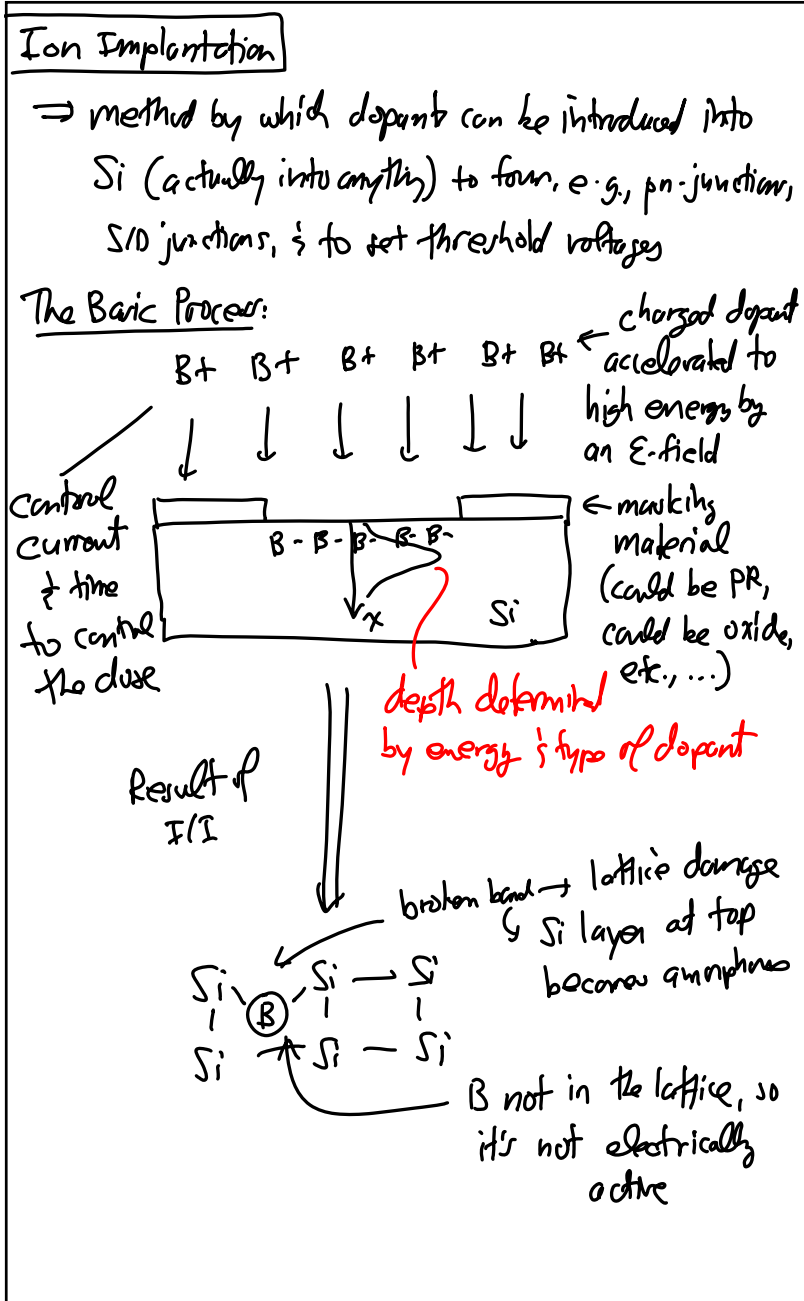 Ion Implantation
⇒ method by which dopant can be introduced into
Si (actually into anything) to form, e.g., pn-junctions,
S/D junctions, & to set threshold voltages
The Basic Process:
B+ B+ B+ B+ B+ B+ ← charged dopant
accelerated to
high energy by
an E-field
control
current
& time
to control
the dose
B- B- B- B- B-
x
Si
← masking
material
(could be PR,
could be oxide,
etc., ...)
depth determined
by energy & type of dopant
Result of
I/I
broken bond → lattice damage
↳ Si layer at top
becomes amorphous
Si Si — Si
B
Si — Si — Si
B not in the lattice, so
it's not electrically
active